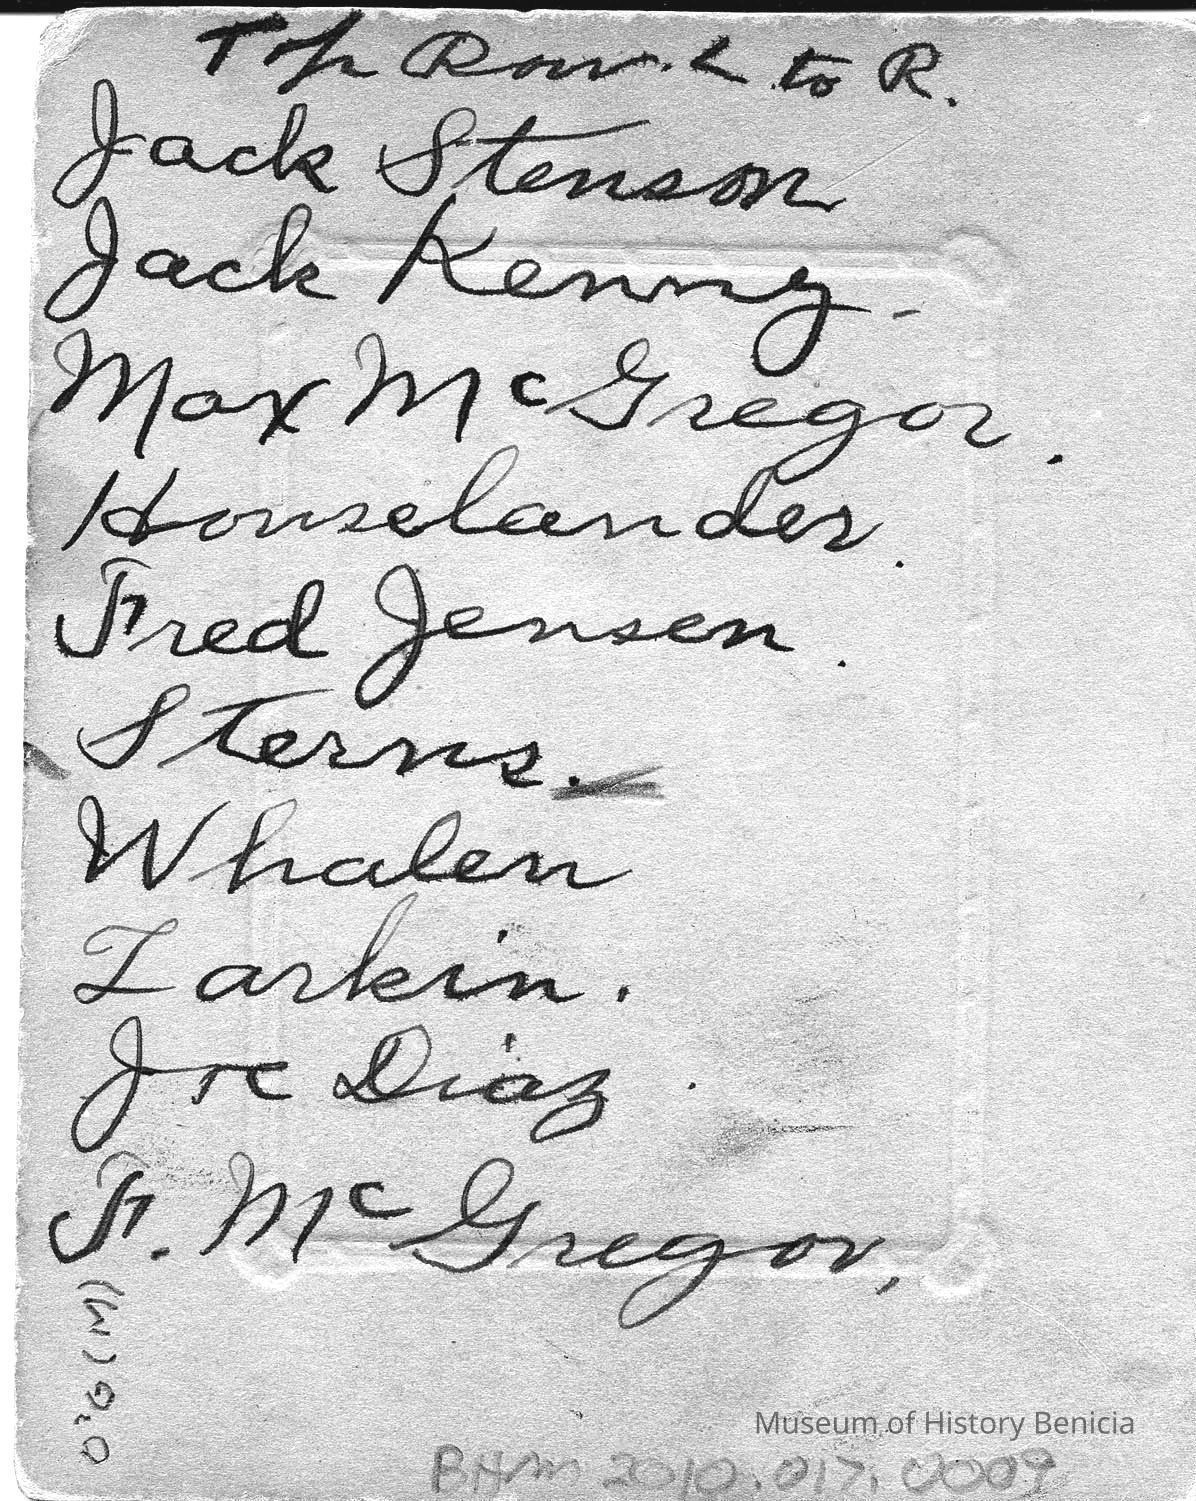 Top Row. L to R.
Jack Stenson
Jack Kenny.
Max McGregor.
Houselander.
Fred Jensen.
Sterns.
Whalen
Larkin.
Joe Diaz.
F. McGregor,
O'G (M)
Museum of History Benicia
BHM 2010.017.0009